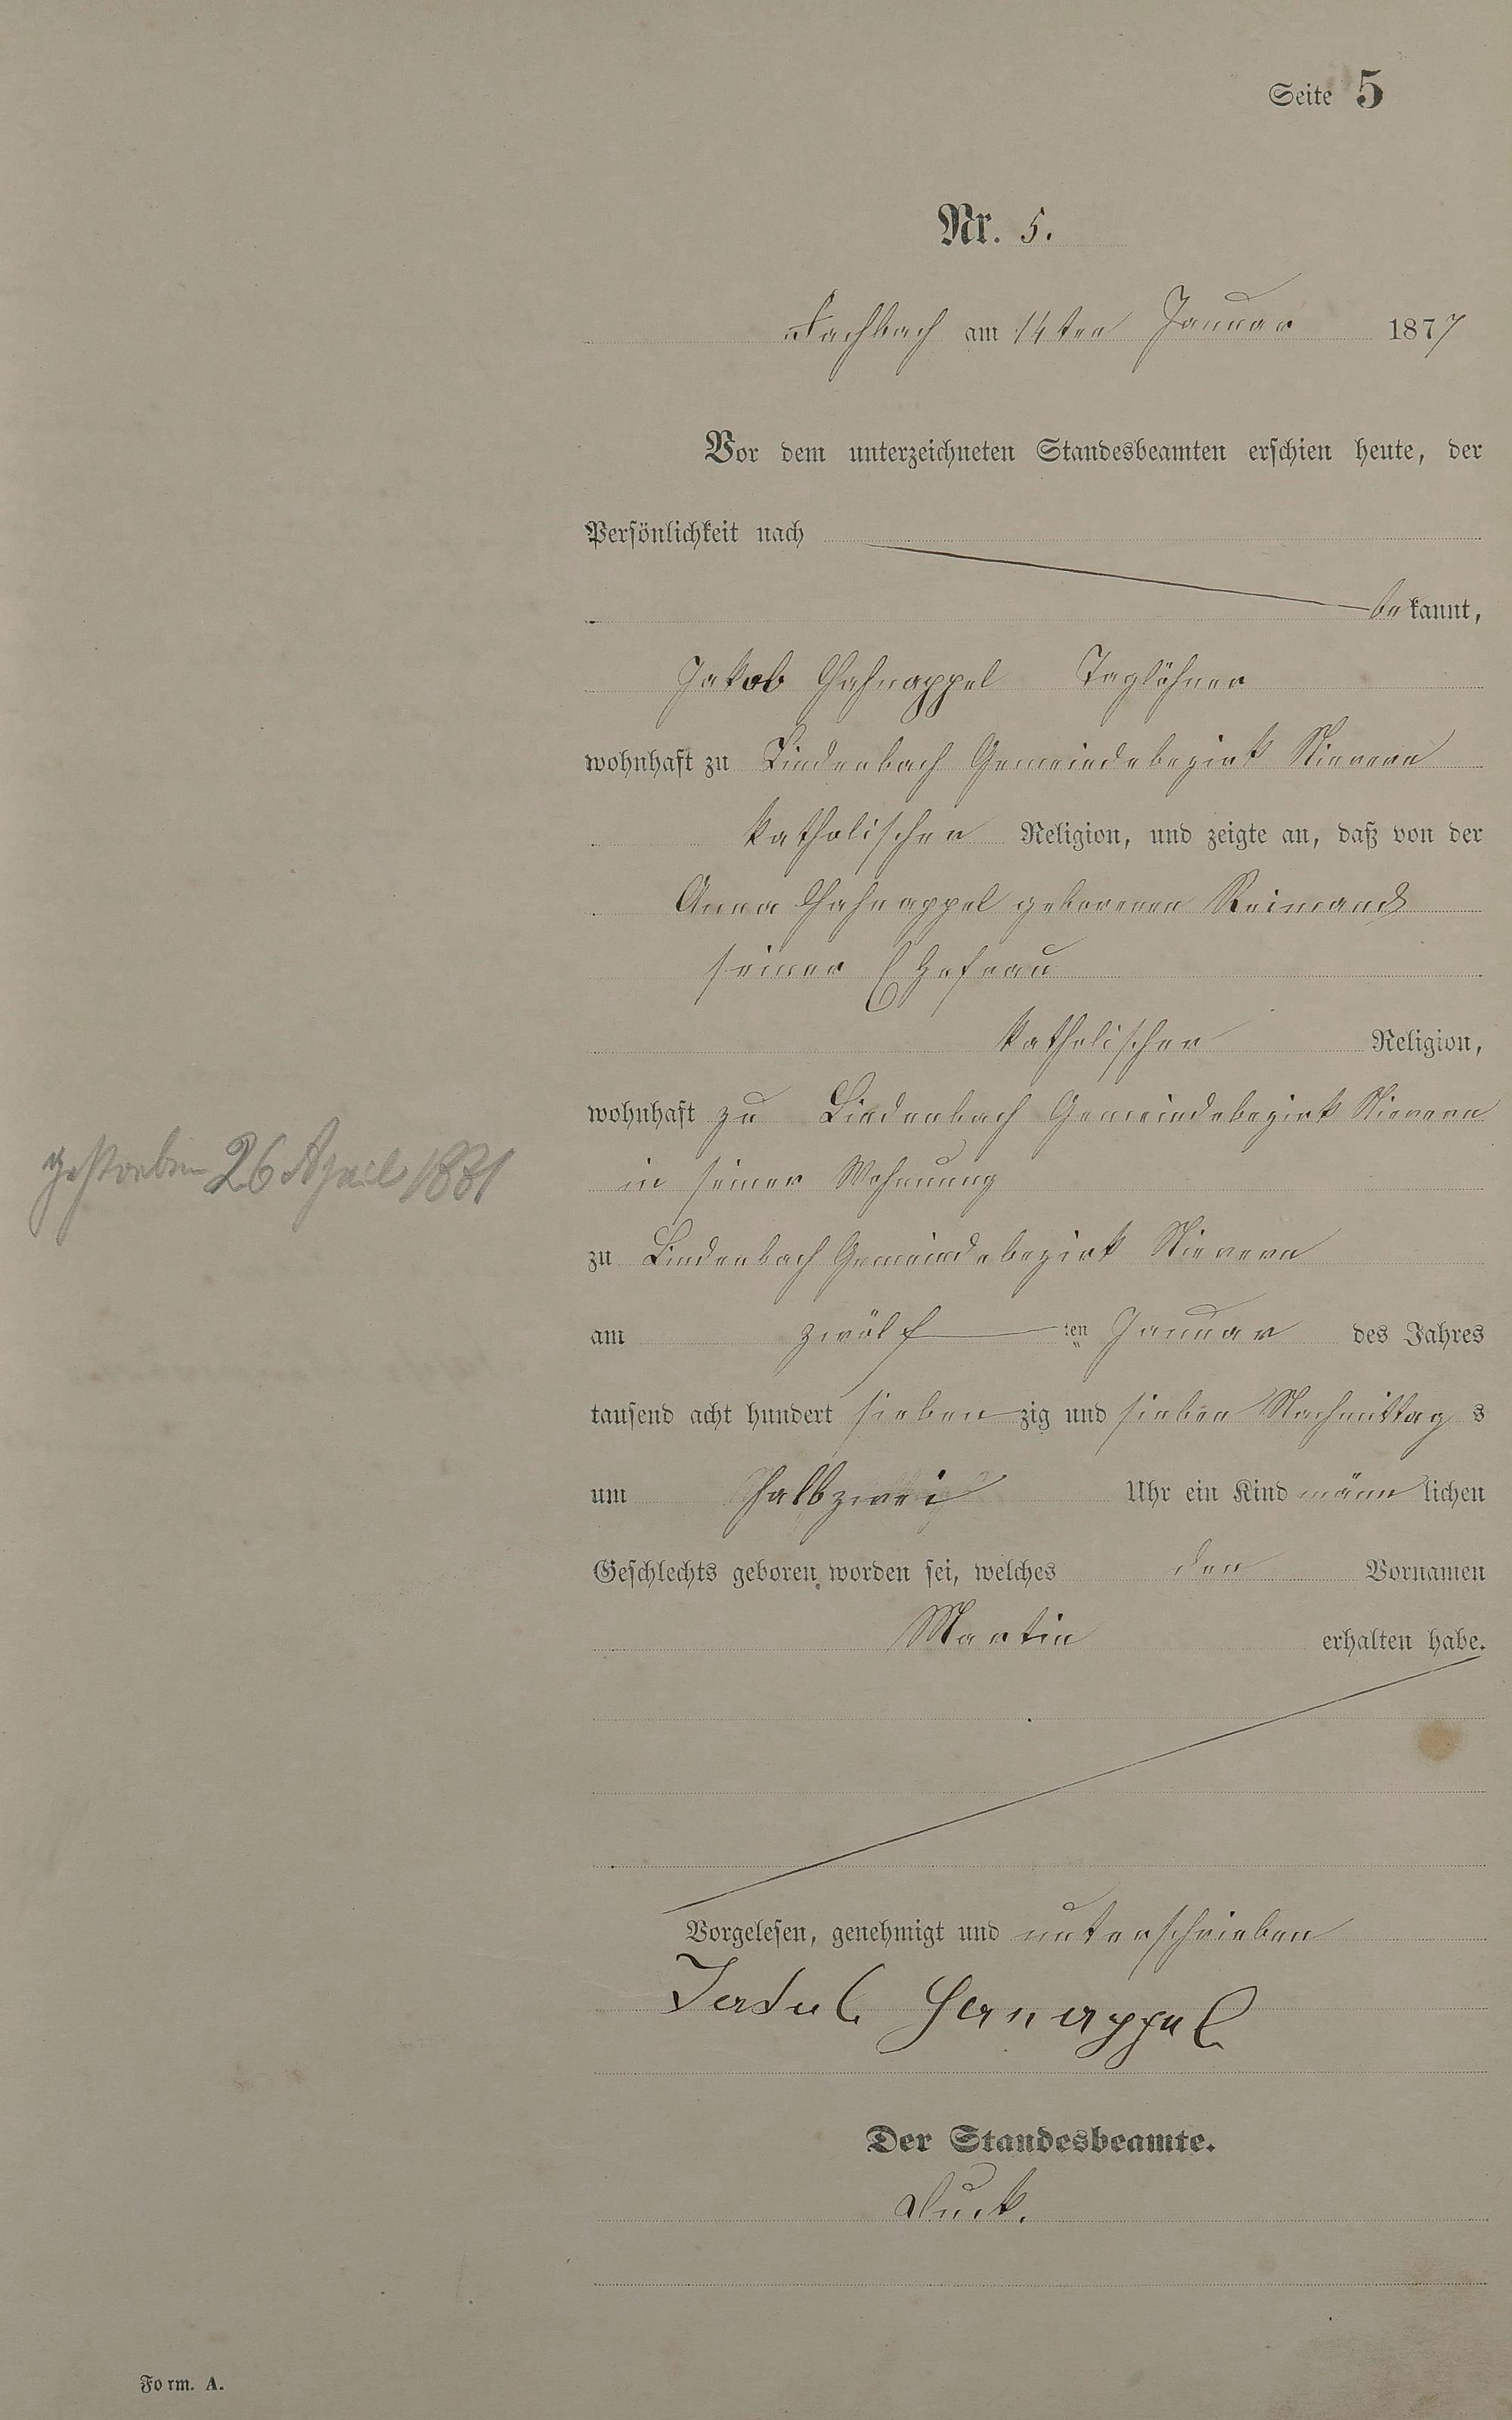 Seite 5
Nr. 5.
Fachbach am 14ten Januar 1877
Vor dem unterzeichneten Standesbeamten erschien heute, der
Persönlichkeit nach
bekannt,
Jakob Hahnappel Taglöhner
wohnhaft zu Lindenbach Gemeindebezirk Nievern
katholischer Religion, und zeigte an, daß von der
Anna Hahnappel geborenen Reimand
seiner Ehefrau
katholischer Religion,
wohnhaft zu Lindenbach Gemeindebezirk Nievern
gestorben 26 April 1881
in seiner Wohnung
zu Lindenbach Gemeindebezirk Nievern
am zwölf ten Januar des Jahres
tausend acht hundert siebenzig und sieben Nachmittags
um halbzwei Uhr ein Kind männlichen
Geschlechts geboren worden sei, welches den Vornamen
Martin erhalten habe.
Vorgelesen, genehmigt und unterschrieben
Jakob Hanappel
Der Standesbeamte.
Form. A.